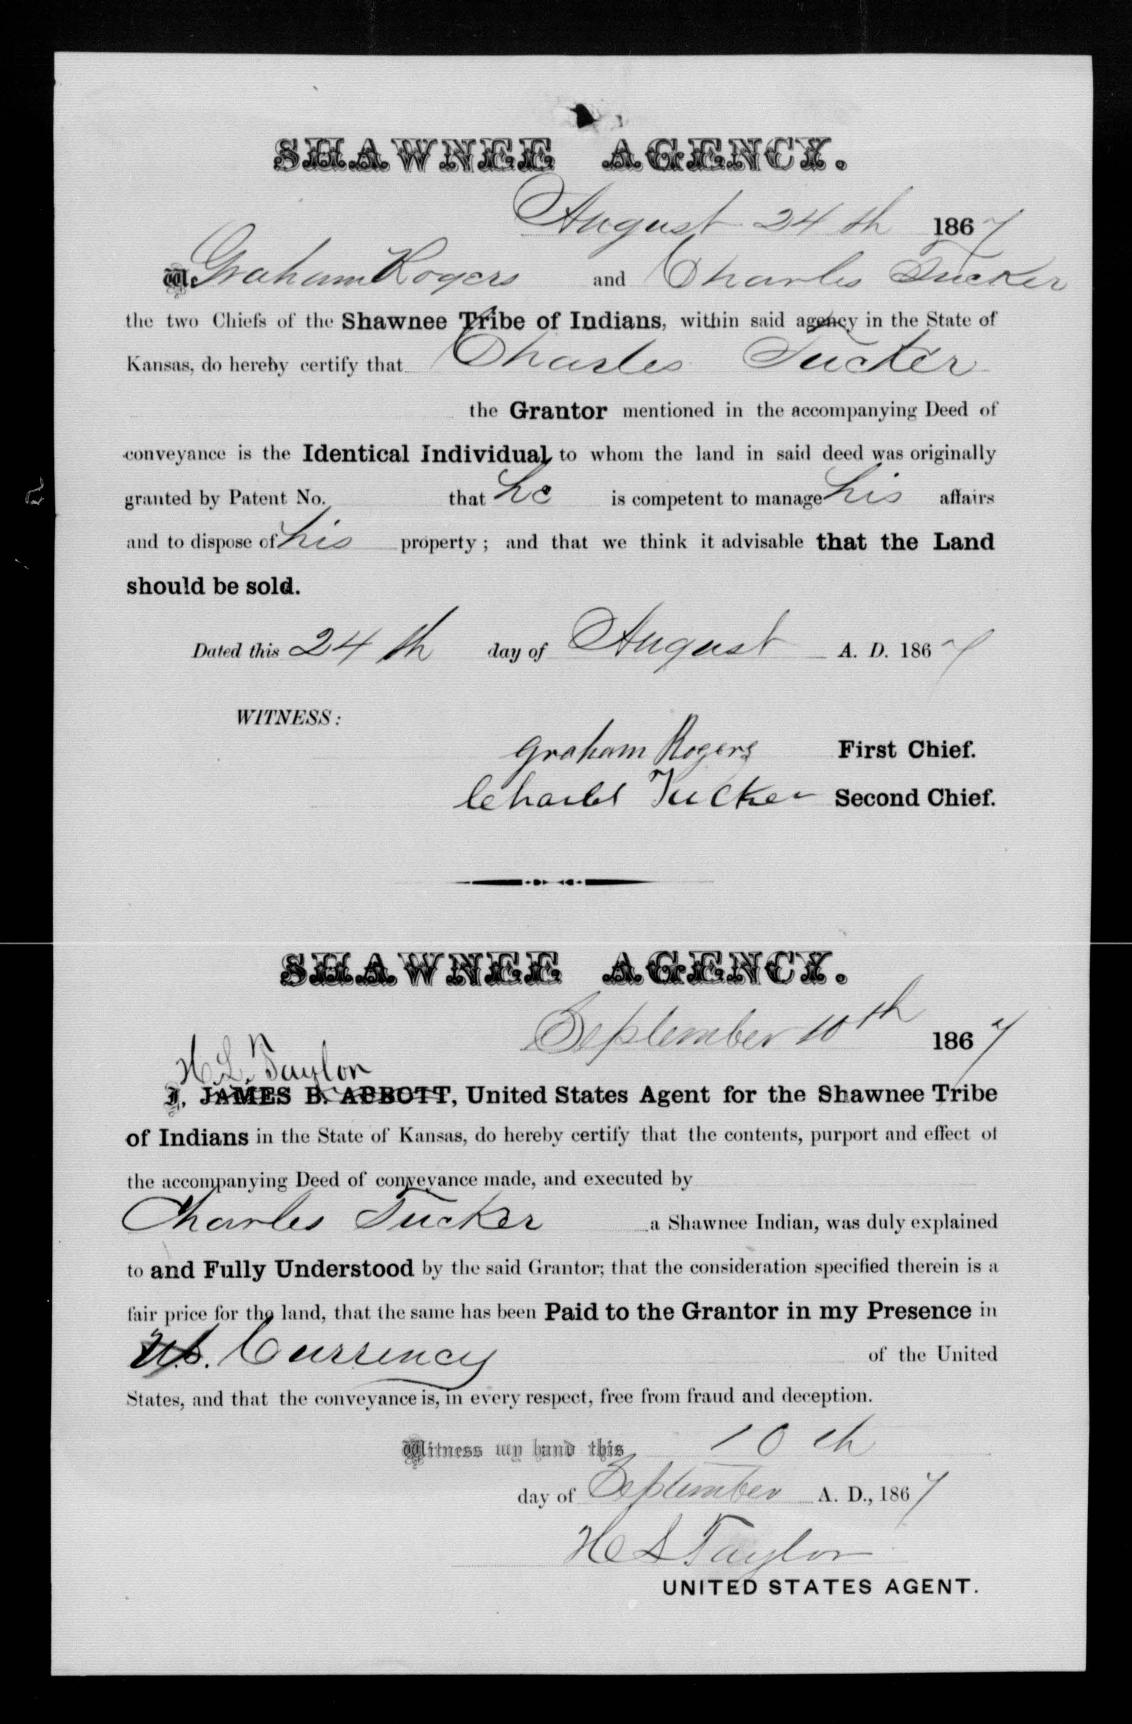 SHAWNEE AGENCY.
August 24th 1867
We Graham Rogers and Charles Tucker
the two Chiefs of the Shawnee Tribe of Indians, within said agency in the State of
Kansas, do hereby certify that Charles Tucker
the Grantor mentioned in the accompanying Deed of
conveyance is the Identical Individual, to whom the land in said deed was originally
granted by Patent No. that he is competent to manage his affairs
and to dispose of his property; and that we think it advisable that the Land
should be sold.
Dated this 24th day of August A. D. 1867
WITNESS:
Graham Rogers First Chief.
Charles Tucker Second Chief.
SHAWNEE AGENCY.
September 10th 1867
H. L. Taylor
I, JAMES B. ABBOTT, United States Agent for the Shawnee Tribe
of Indians in the State of Kansas, do hereby certify that the contents, purport and effect of
the accompanying Deed of conveyance made, and executed by
Charles Tucker a Shawnee Indian, was duly explained
to and Fully Understood by the said Grantor; that the consideration specified therein is a
fair price for the land, that the same has been Paid to the Grantor in my Presence in
U.S. Currency of the United
States, and that the conveyance is, in every respect, free from fraud and deception.
Witness my hand this 10th
day of September A. D., 1867
H L Taylor
UNITED STATES AGENT.